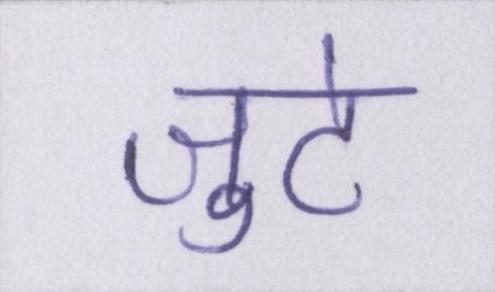 जुटे